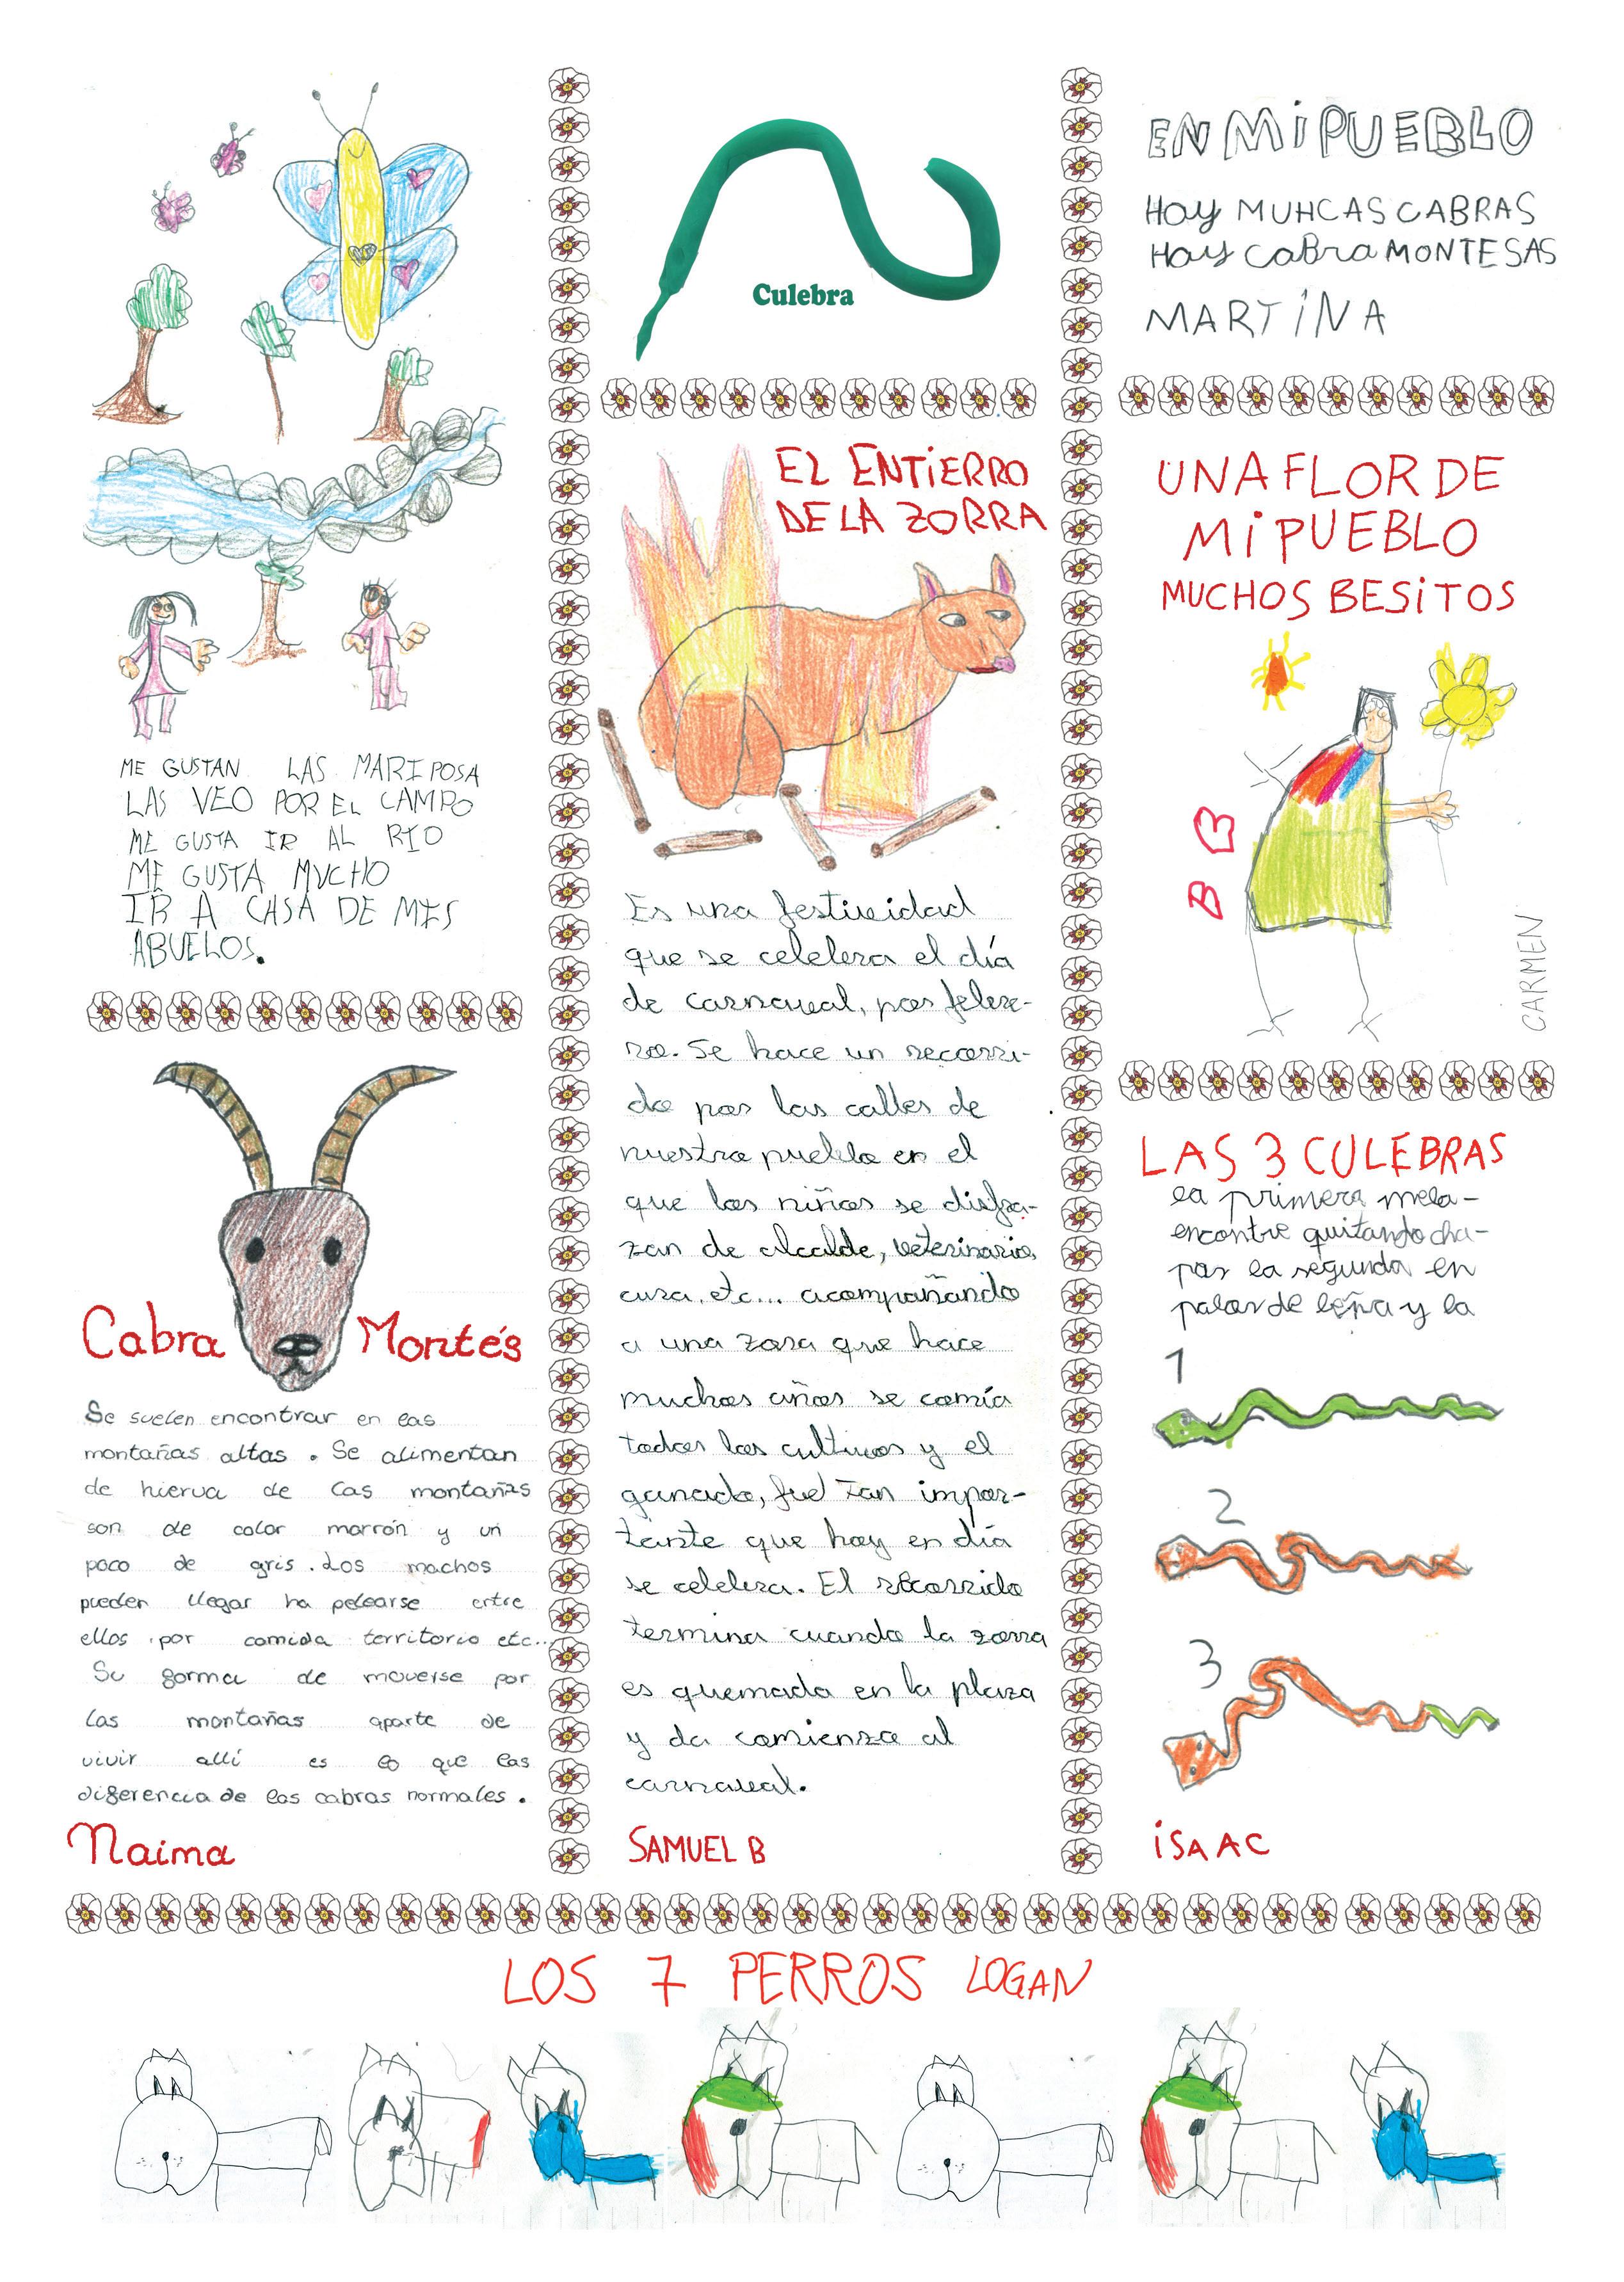 ME GUSTAN LAS MARIPOSA
LAS VEO POR EL CAMPO
ME GUSTA IR AL RIO
ME GUSTA MUCHO
IR A CASA DE MIS
ABUELOS.
Cabra Montés
Se suelen encontrar en las
montañas altas. Se alimentan
de hierva de las montañas
son de color marrón y un
poco de gris. Los machos
pueden llegar ha pelearse entre
ellos por comida territorio etc..
Su forma de moverse por
las montañas aparte de
vivir allí es lo que las
diferencia de las cabras normales.
Naima
Culebra
EL ENTiERRO
DE LA ZORRA
Es una festividad
que se celebra el día
de carnaval, por febre-
ro. Se hace un recorri-
do por las calles de
nuestro pueblo en el
que los niños se disfra-
zan de alcalde, veterinario,
cura, etc... acompañando
a una zorra que hace
muchos años se comía
todos los cultivos y el
ganado, fue tan impor-
tante que hoy en día
se celebra. El recorrido
termina cuando la zorra
es quemada en la plaza
y da comienzo al
carnaval.
SAMUEL B
EN Mi PUEBLO
Hay MUHCAS CABRAS
Hay cabra MONTESAS
MARTiNA
UNA FLOR DE
Mi PUEBLO
MUCHOS BESiTOS
B
CARMEN
LAS 3 CULEBRAS
la primera mela-
encontre quitando cha-
pas la segunda en
palos de leña y la
1
2
3
iSAAC
LOS 7 PERROS LOGAN